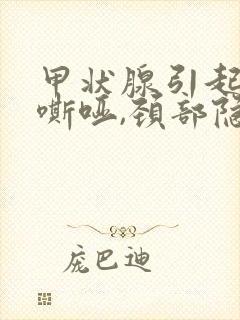 甲状腺引起
嘶哑,颈部隐
庞巴迪